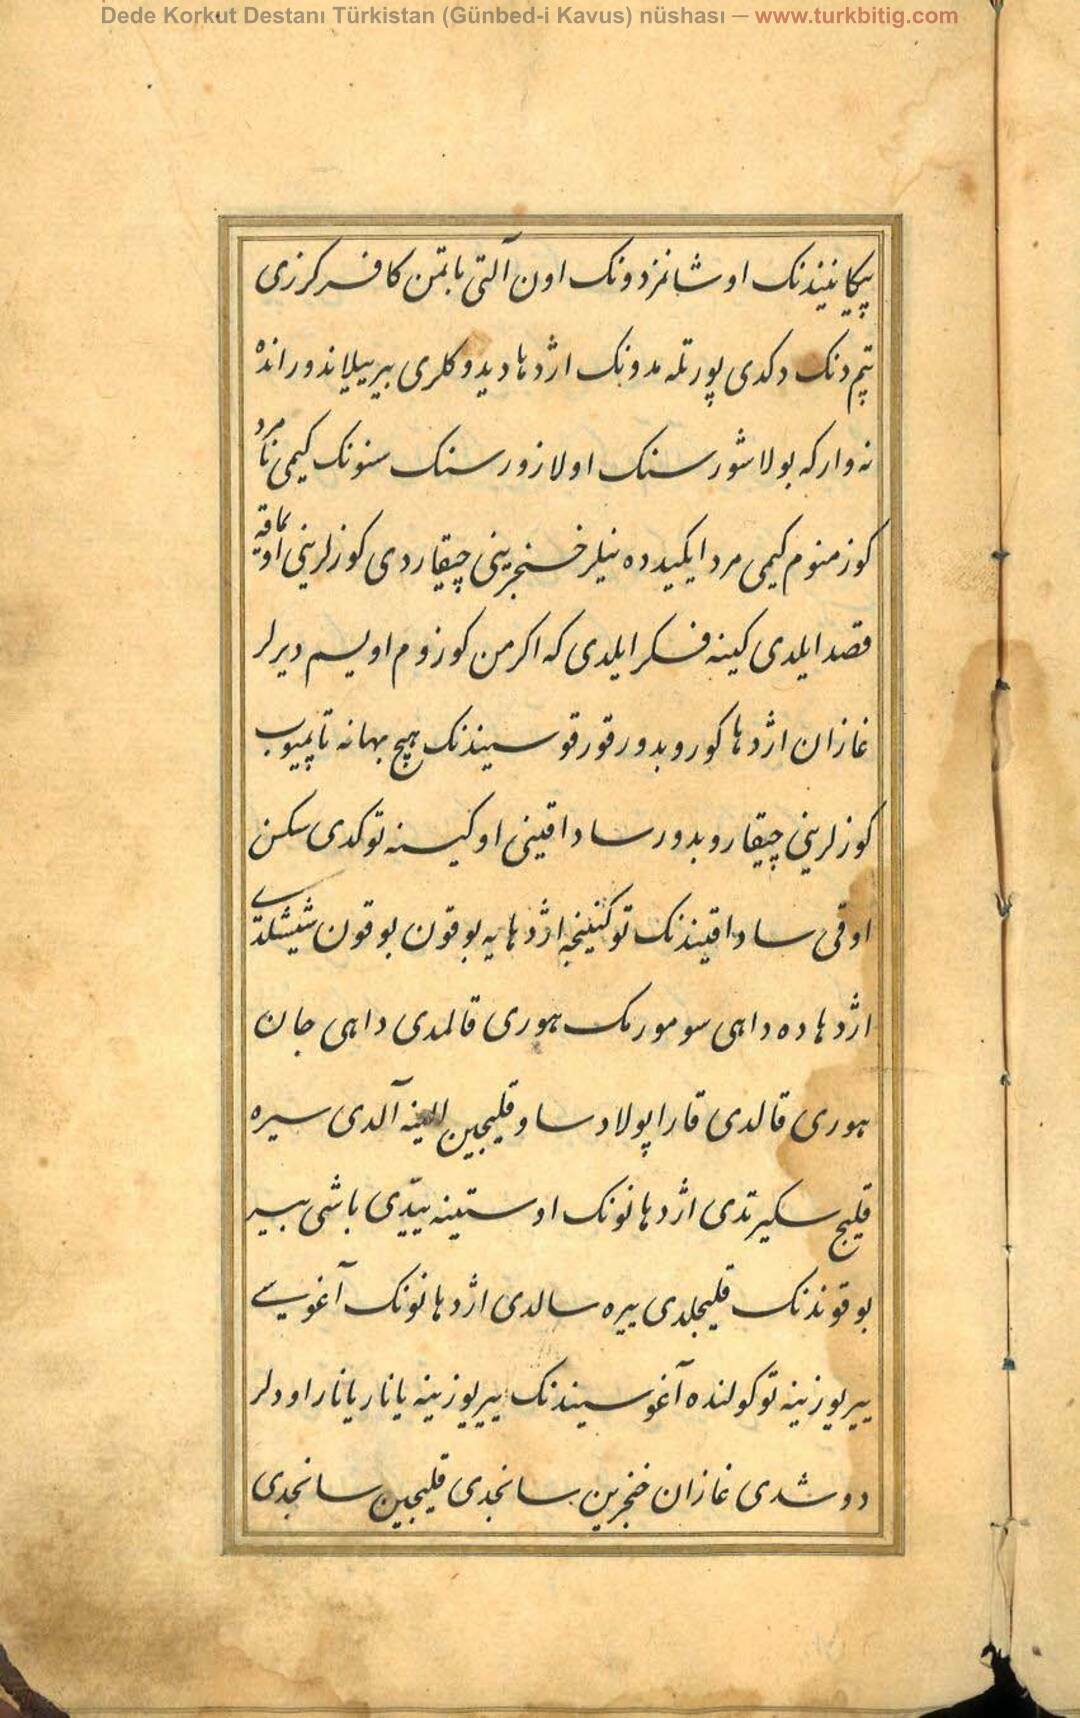 Dede Korkut Destanı Türkistan (Günbed-i Kavus) nüshası — www.turkbitig.com
پیکانیندنک اوشانمزدونک اون آلتی باتمن کافر کرزی
تپم دنک دکدی پورتلمدونک اژدها دیدوکلری بیر ییلاندور انده
نه وار که بولاشورسنک اولازورسنک سنونک کیمی نامرد
کوز منوم کیمی مرد ایکیدده نیلر خنجرینی چیقاردی کوزلرینی اویماقه
قصد ایلدی کینه فکر ایلدی که اکر من کوزوم اویسم دیرلر
غازان اژدها کوروبدور قورقوسیندنک هیچ بهانه تاپمیوب
کوزلرینی چیقاروبدور ساداقینی اوکینه توکدی سکسن
اوقی ساداقیندنک توکنینجه اژدهایه بوقون بوقون شیشلدی
اژدهاده داهی سومورمک هوری قالمدی داهی جان
هوری قالدی قارا پولاد ساو قلیجین الینه آلدی سیره
قلیج سکیرتدی اژدهانونک اوستینه ییدی باشی بیر
بوقوندنک قلیجلدی ییره سالدی اژدهانونک آغوسی
ییر یوزینه توکولنده آغوسیندنک ییر یوزینه یانار یانار اودلر
دوشدی غازان خنجرین سانجدی قلیجین سانجدی